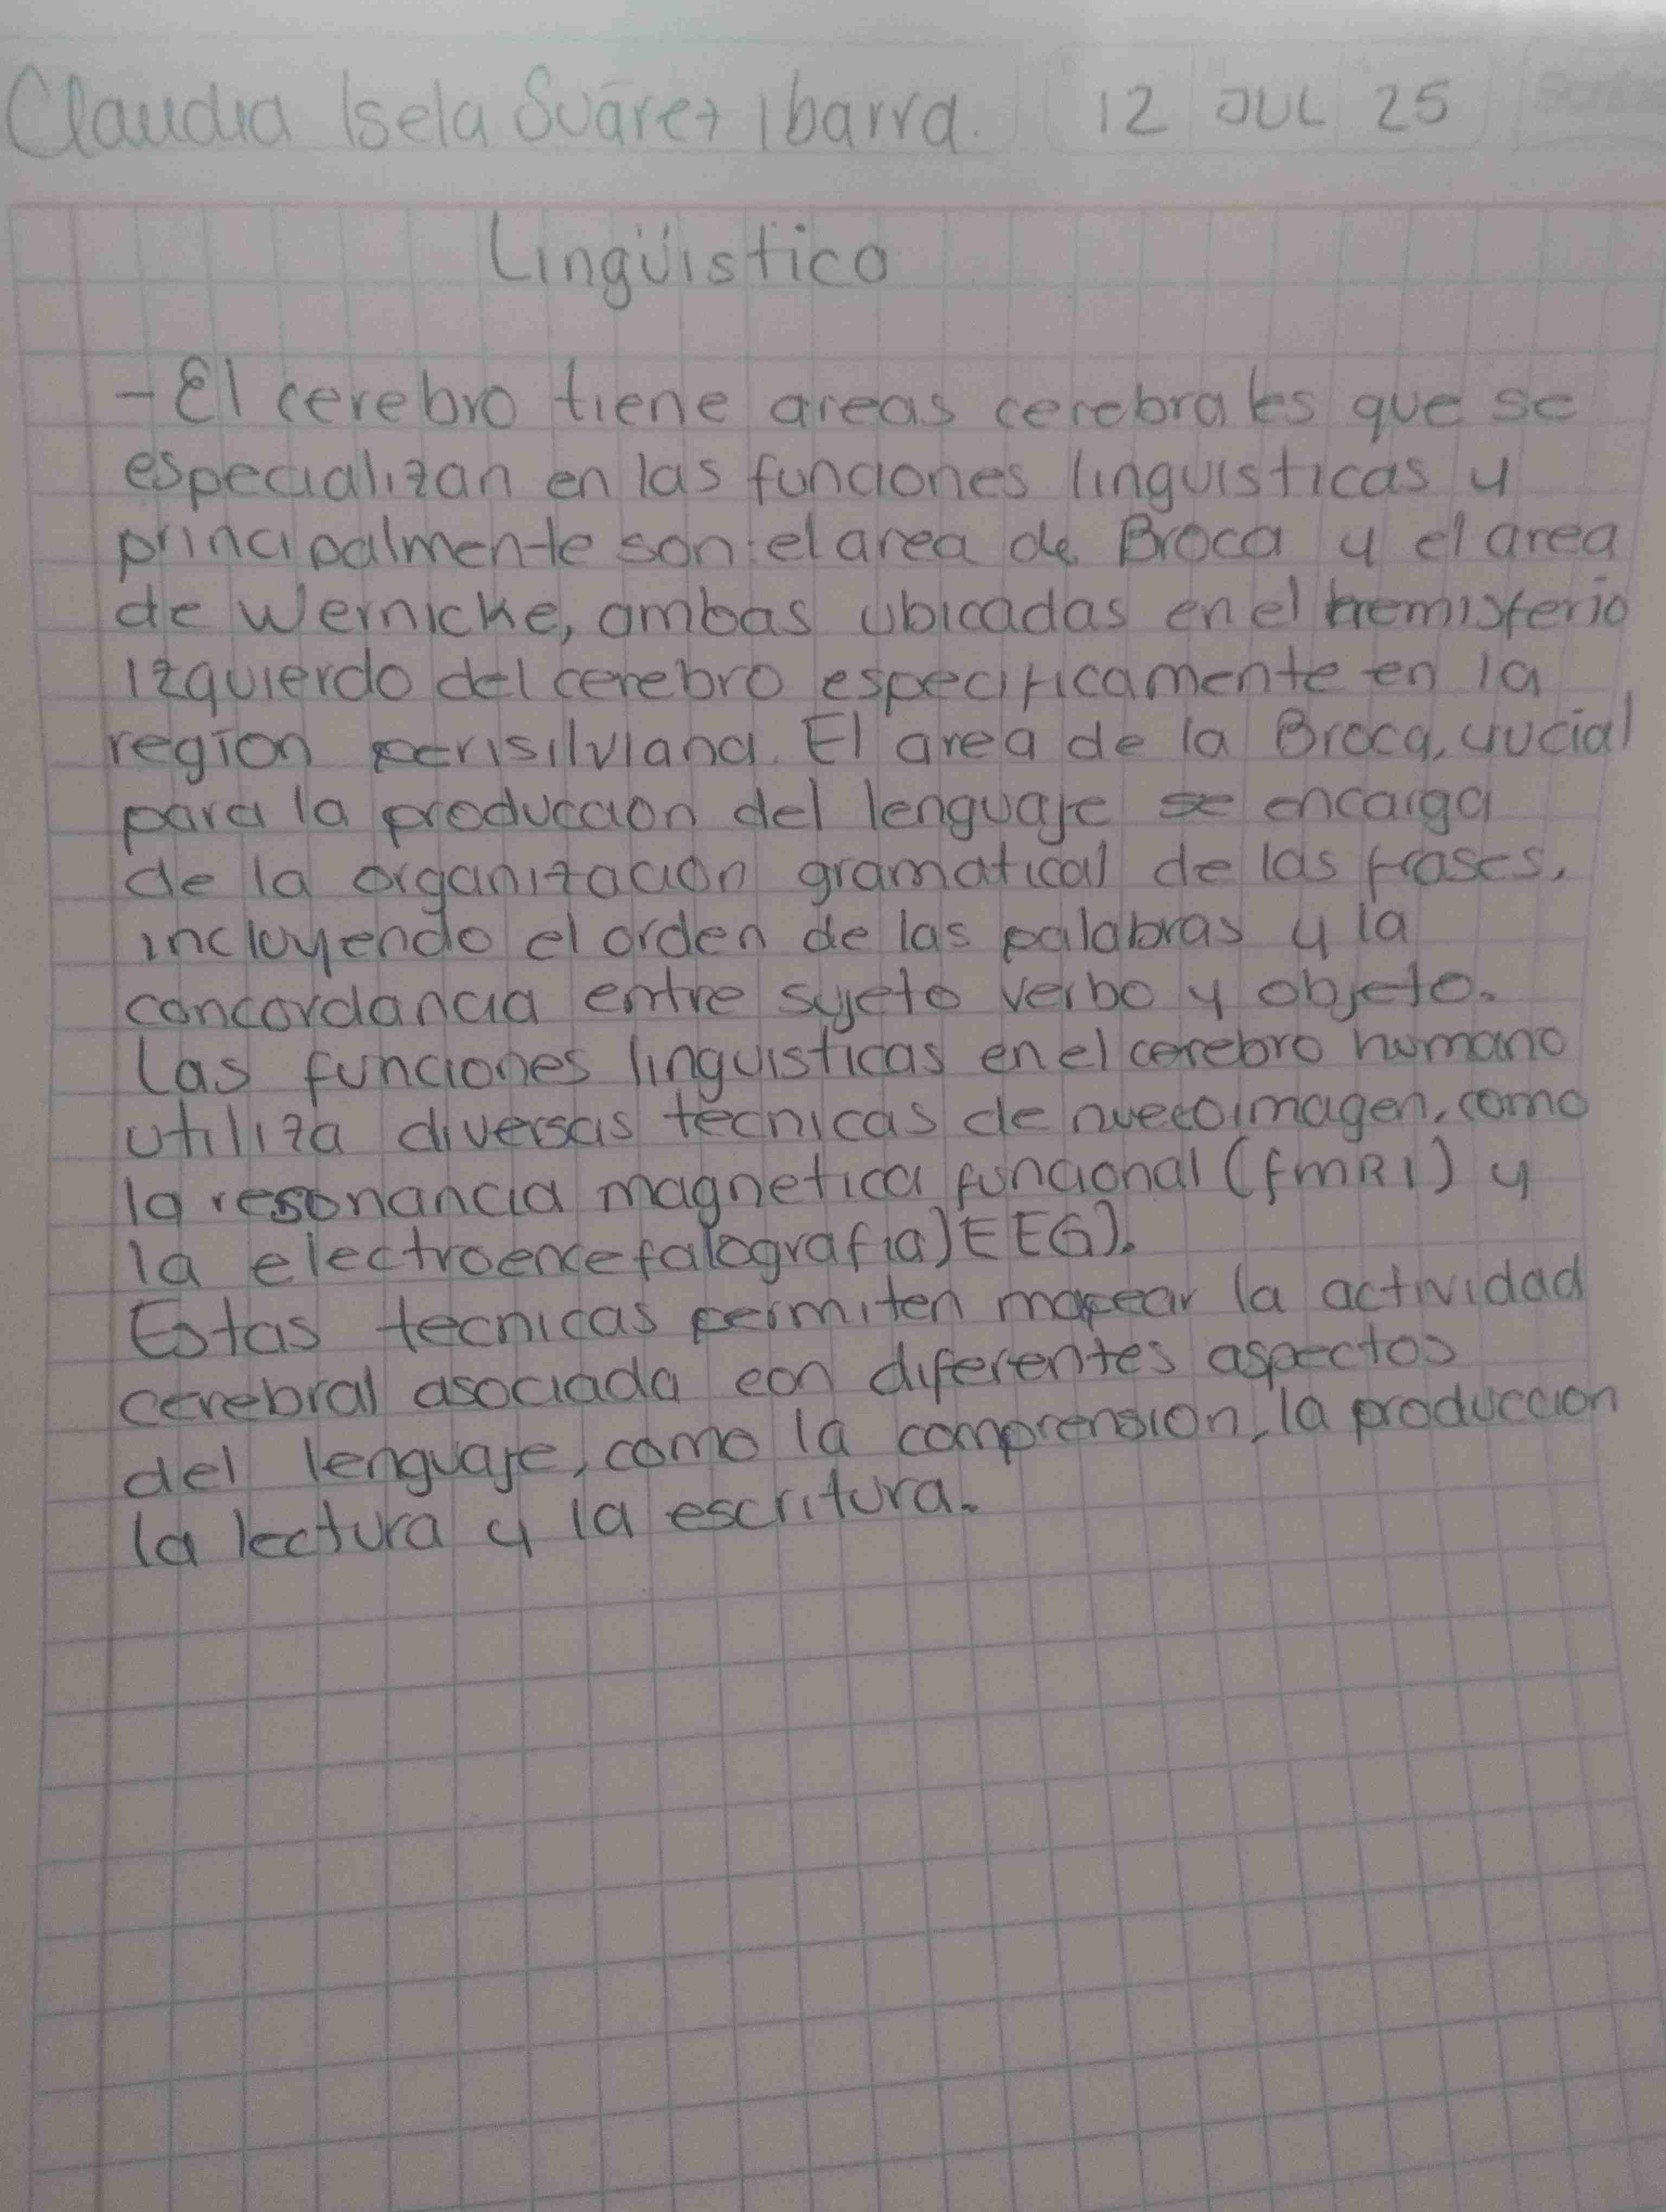 Claudia Isela Suárez Ibarra. 12 JUL 25
Lingüistico
- El cerebro tiene areas cerebrales que se
especializan en las funciones linguisticas y
principalmente son: el area de Broca y el area
de Wernicke, ambas ubicadas en el hemisferio
izquierdo del cerebro especificamente en la
región perisilviana. El area de la Broca, crucial
para la producción del lenguaje se encarga
de la organización gramatical de las frases,
incluyendo el orden de las palabras y la
concordancia entre sujeto verbo y objeto.
Las funciones linguisticas en el cerebro humano
utiliza diversas tecnicas de nueroimagen, como
la resonancia magnetica funcional (fmRI) y
la electroencefalografia)EEG).
Estas tecnicas permiten mapear la actividad
cerebral asociada con diferentes aspectos
del lenguaje, como la comprension, la produccion
la lectura y la escritura.